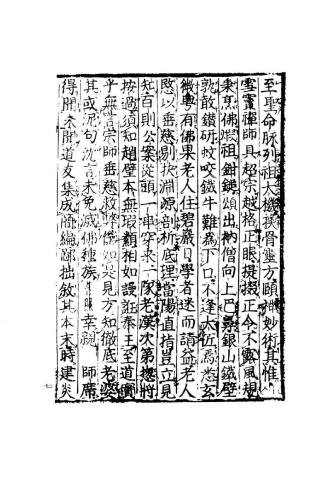 至聖命脉列祖大機換骨靈方頤神妙術其惟
雪竇禪師具超宗越格正眼提掇正令不露風規
秉烹佛煆祖鉗鎚頌出衲僧向上巴鼻銀山鐵壁
孰敢鑽研蚊咬鐵牛難為下口不逢大匠焉悉玄
微粵有佛果老人住碧巖日學者迷而請益老人
愍以垂慈剔抉淵源剖析底理當陽直指豈立見
知百則公案從頭一串穿來一隊老漢次第揔將
按過須知趙璧本無瑕纇相如謾誑秦王至道實
乎無言宗師垂慈救弊儻如是見方知徹底老婆
其或泥句沈言未免滅佛種族普照幸親 師席
得聞未聞道友集成簡編鄙拙敘其本末時建炎
七